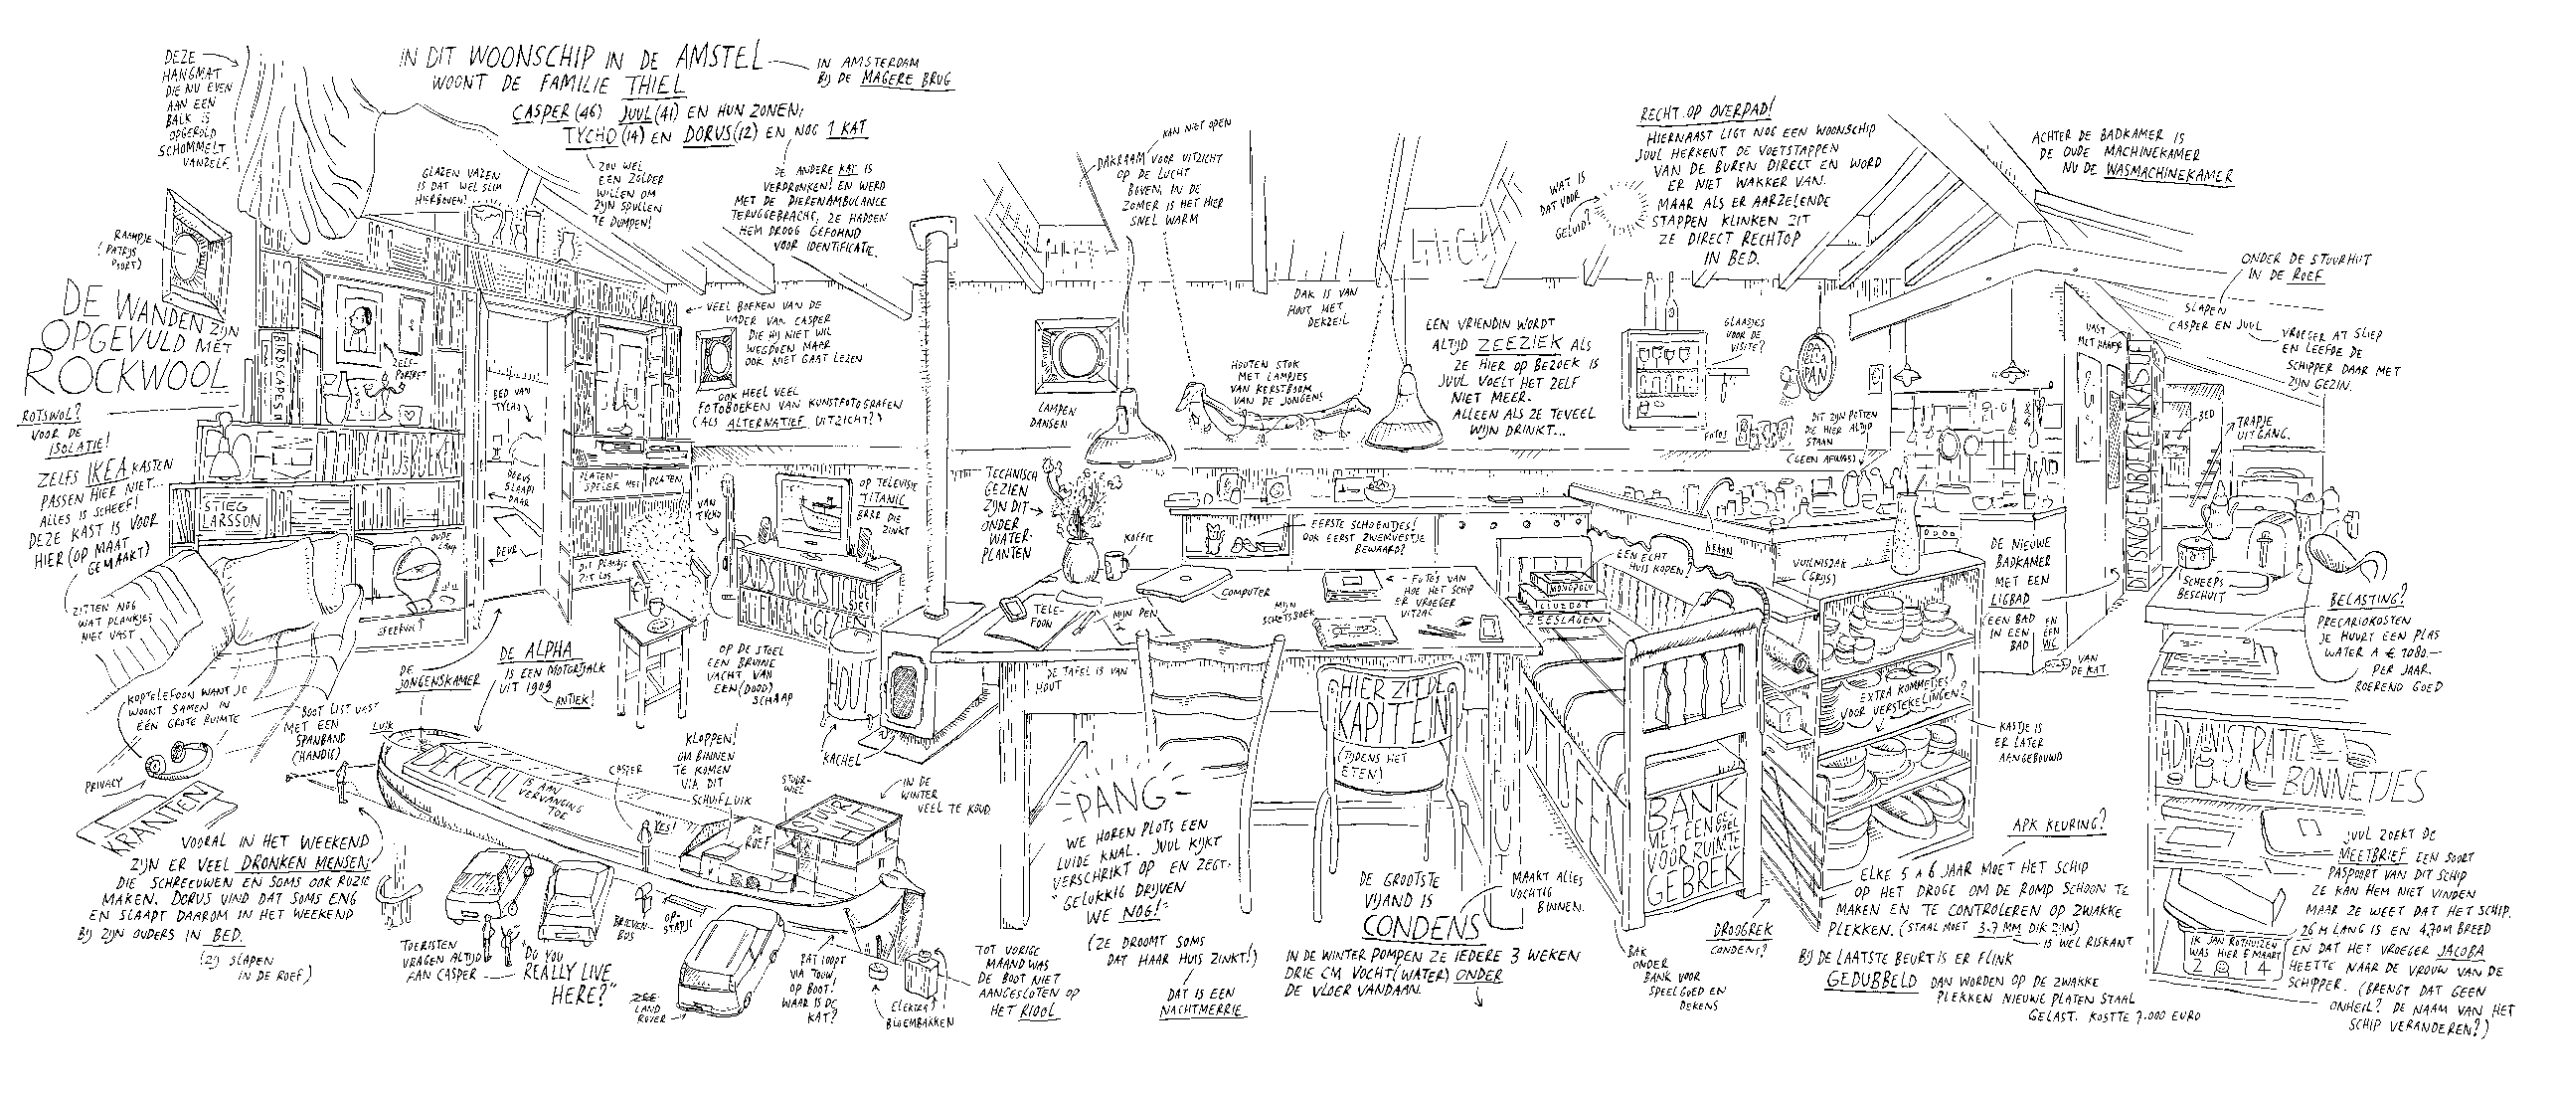 DEZE
HANGMAT
DIE NU EVEN
AAN EEN
BALK IS
OPGEROLD
SCHOMMELT
VANZELF.
IN DIT WOONSCHIP IN DE AMSTEL
WOONT DE FAMILIE THIEL
IN AMSTERDAM
BIJ DE MAGERE BRUG
CASPER (46) JUUL (41) EN HUN ZONEN;
TYCHO (14) EN DORUS (12) EN NOG 1 KAT
ZOU WEL
EEN ZOLDER
WILLEN OM
ZIJN SPULLEN
TE DUMPEN!
DE ANDERE KAT IS
VERDRONKEN! EN WERD
MET DE DIERENAMBULANCE
TERUGGEBRACHT, ZE HADDEN
HEM DROOG GEFOHND
VOOR IDENTIFICATIE.
GLAZEN VAZEN
IS DAT WEL SLIM
HIERBOVEN?
RAAMPJE
(PATRIJS
POORT)
DE WANDEN ZIJN
OPGEVULD MET
ROCKWOOL
ROTSWOL?
VOOR DE
ISOLATIE!
ZELFS IKEA KASTEN
PASSEN HIER NIET...
ALLES IS SCHEEF!
DEZE KAST IS VOOR
HIER (OP MAAT
GEMAAKT)
ZITTEN NOG
WAT PLANKJES
NIET VAST
BIRDSCAPES
ZELF-
PORTRET
STIEG
LARSSON
OUDE
SFEERVOL!
BED VAN
TYCHO
DORUS
SLAAPT
DAAR
DEUR
PLATEN-
SPELER MET PLATEN
DIT PLANKJE
ZIT LOS
VEEL BOEKEN VAN DE
VADER VAN CASPER
DIE HIJ NIET WIL
WEGDOEN MAAR
OOK NIET GAAT LEZEN
OOK HEEL VEEL
FOTOBOEKEN VAN KUNSTFOTOGRAFEN
(ALS ALTERNATIEF UITZICHT?)
VAN
TYCHO
OP TELEVISIE
TITANIC
BRRR DIE
ZINKT
OP DE STOEL
EEN BRUINE
VACHT VAN
EEN (DOOD)
SCHAAP
KACHEL
DE
JONGENSKAMER
DE ALPHA
IS EEN MOTORTJALK
UIT 1909
ANTIEK!
KOPTELEFOON WANT JE
WOONT SAMEN IN
ÉÉN GROTE RUIMTE
PRIVACY
KRANTEN
BOOT LIGT VAST
MET EEN
SPANBAND
(HANDIG)
LUIK
DEKZEIL
IS AAN
VERVANGING
TOE
KLOPPEN!
OM BINNEN
TE KOMEN
VIA DIT
SCHUIFLUIK
CASPER
YES!
STUUR-
WIEL
DE
ROEF
STUUR
HUT
IN DE
WINTER
VEEL TE KOUD
VOORAL IN HET WEEKEND
ZIJN ER VEEL DRONKEN MENSEN
DIE SCHREEUWEN EN SOMS OOK RUZIE
MAKEN. DORUS VIND DAT SOMS ENG
EN SLAAPT DAAROM IN HET WEEKEND
BIJ ZIJN OUDERS IN BED.
(ZIJ SLAPEN
IN DE ROEF)
TOERISTEN
VRAGEN ALTIJD
AAN CASPER
"DO YOU
REALLY LIVE
HERE?"
BRIEVEN-
BUS
OP-
STAPJE
ZEE
LAND
ROVER
KAT LOOPT
VIA TOUW
OP BOOT!
WAAR IS DE
KAT?
ELEKTRA?
BLOEMBAKKEN
TOT VORIGE
MAAND WAS
DE BOOT NIET
AANGESLOTEN OP
HET RIOOL
KAN NIET OPEN
DAKRAAM VOOR UITZICHT
OP DE LUCHT
BOVEN, IN DE
ZOMER IS HET HIER
SNEL WARM
LAMPEN
DANSEN
DAK IS VAN
HOUT MET
DEKZEIL
HOUTEN STOK
MET LAMPJES
VAN KERSTBOOM
VAN DE JONGENS
TECHNISCH
GEZIEN
ZIJN DIT
ONDER
WATER-
PLANTEN
KOFFIE
EERSTE SCHOENTJES!
OOK EERST ZWEMVESTJE
BEWAARD?
TELE-
FOON
MIJN PEN
COMPUTER
MIJN
SCHETSBOEK
FOTO'S VAN
HOE HET SCHIP
ER VROEGER
UITZAG
DE TAFEL IS VAN
HOUT
HIER ZIT DE
KAPITEIN
(TIJDENS HET
ETEN)
PANG
WE HOREN PLOTS EEN
LUIDE KNAL. JUUL KIJKT
VERSCHRIKT OP EN ZEGT:
"GELUKKIG DRIJVEN
WE NOG!"
(ZE DROOMT SOMS
DAT HAAR HUIS ZINKT!)
DAT IS EEN
NACHTMERRIE
DE GROOTSTE
VIJAND IS
CONDENS
MAAKT ALLES
VOCHTIG
BINNEN.
IN DE WINTER POMPEN ZE IEDERE 3 WEKEN
DRIE CM VOCHT (WATER) ONDER
DE VLOER VANDAAN.
WAT IS
DAT VOOR
GELUID?
RECHT OP OVERPAD!
HIERNAAST LIGT NOG EEN WOONSCHIP
JUUL HERKENT DE VOETSTAPPEN
VAN DE BUREN DIRECT EN WORD
ER NIET WAKKER VAN.
MAAR ALS ER AARZELENDE
STAPPEN KLINKEN ZIT
ZE DIRECT RECHTOP
IN BED.
EEN VRIENDIN WORDT
ALTIJD ZEEZIEK ALS
ZE HIER OP BEZOEK IS
JUUL VOELT HET ZELF
NIET MEER.
ALLEEN ALS ZE TEVEEL
WIJN DRINKT...
GLAASJES
VOOR DE
VISITE?
PAELLA
PAN
FOTOS
DIT ZIJN POTTEN
DIE HIER ALTIJD
STAAN
(GEEN AFWAS)
EEN ECHT
HUIS KOPEN!
MONOPOLY
CLUEDO?
ZEESLAGEN
KRAAN
VUILNISZAK
(GRIJS)
EXTRA KOMMETJES
VOOR VERSTEKELINGEN?
KASTJE IS
ER LATER
AANGEBOUWD
BANK
MET EEN GE-
VOEL
VOOR RUIMTE
GEBREK
BAK
ONDER
BANK VOOR
SPEELGOED EN
DEKENS
DROOGREK
CONDENS?
APK KEURING?
ELKE 5 A 6 JAAR MOET HET SCHIP
OP HET DROGE OM DE ROMP SCHOON TE
MAKEN EN TE CONTROLEREN OP ZWAKKE
PLEKKEN. (STAAL MOET 3.7 MM DIK ZIJN)
IS WEL RISKANT
BIJ DE LAATSTE BEURT IS ER FLINK
GEDUBBELD DAN WORDEN OP DE ZWAKKE
PLEKKEN NIEUWE PLATEN STAAL
GELAST. KOSTTE 7.000 EURO
ACHTER DE BADKAMER IS
DE OUDE MACHINEKAMER
NU DE WASMACHINEKAMER
ONDER DE STUURHUT
IN DE ROEF
SLAPEN
CASPER EN JUUL
VROEGER AT SLIEP
EN LEEFDE DE
SCHIPPER DAAR MET
ZIJN GEZIN.
VAST
MET HAAKJE
BED
TRAPJE
UITGANG.
DE NIEUWE
BADKAMER
MET EEN
LIGBAD
EEN BAD
IN EEN
BAD
EN
EEN
WC
VAN
DE KAT
SCHEEPS
BESCHUIT
BELASTING?
PRECARIOKOSTEN
JE HUURT EEN PLAS
WATER A € 1080.-
PER JAAR.
ROEREND GOED
ADMINISTRATIE
BONNETJES
JUUL ZOEKT DE
MEETBRIEF EEN SOORT
PASPOORT VAN DIT SCHIP
ZE KAN HEM NIET VINDEN
MAAR ZE WEET DAT HET SCHIP
26 M LANG IS EN 4,70M BREED
EN DAT HET VROEGER JACOBA
HEETTE NAAR DE VROUW VAN DE
SCHIPPER. (BRENGT DAT GEEN
ONHEIL? DE NAAM VAN HET
SCHIP VERANDEREN?)
IK JAN ROTHUIZEN
WAS HIER 6 MAART
2014